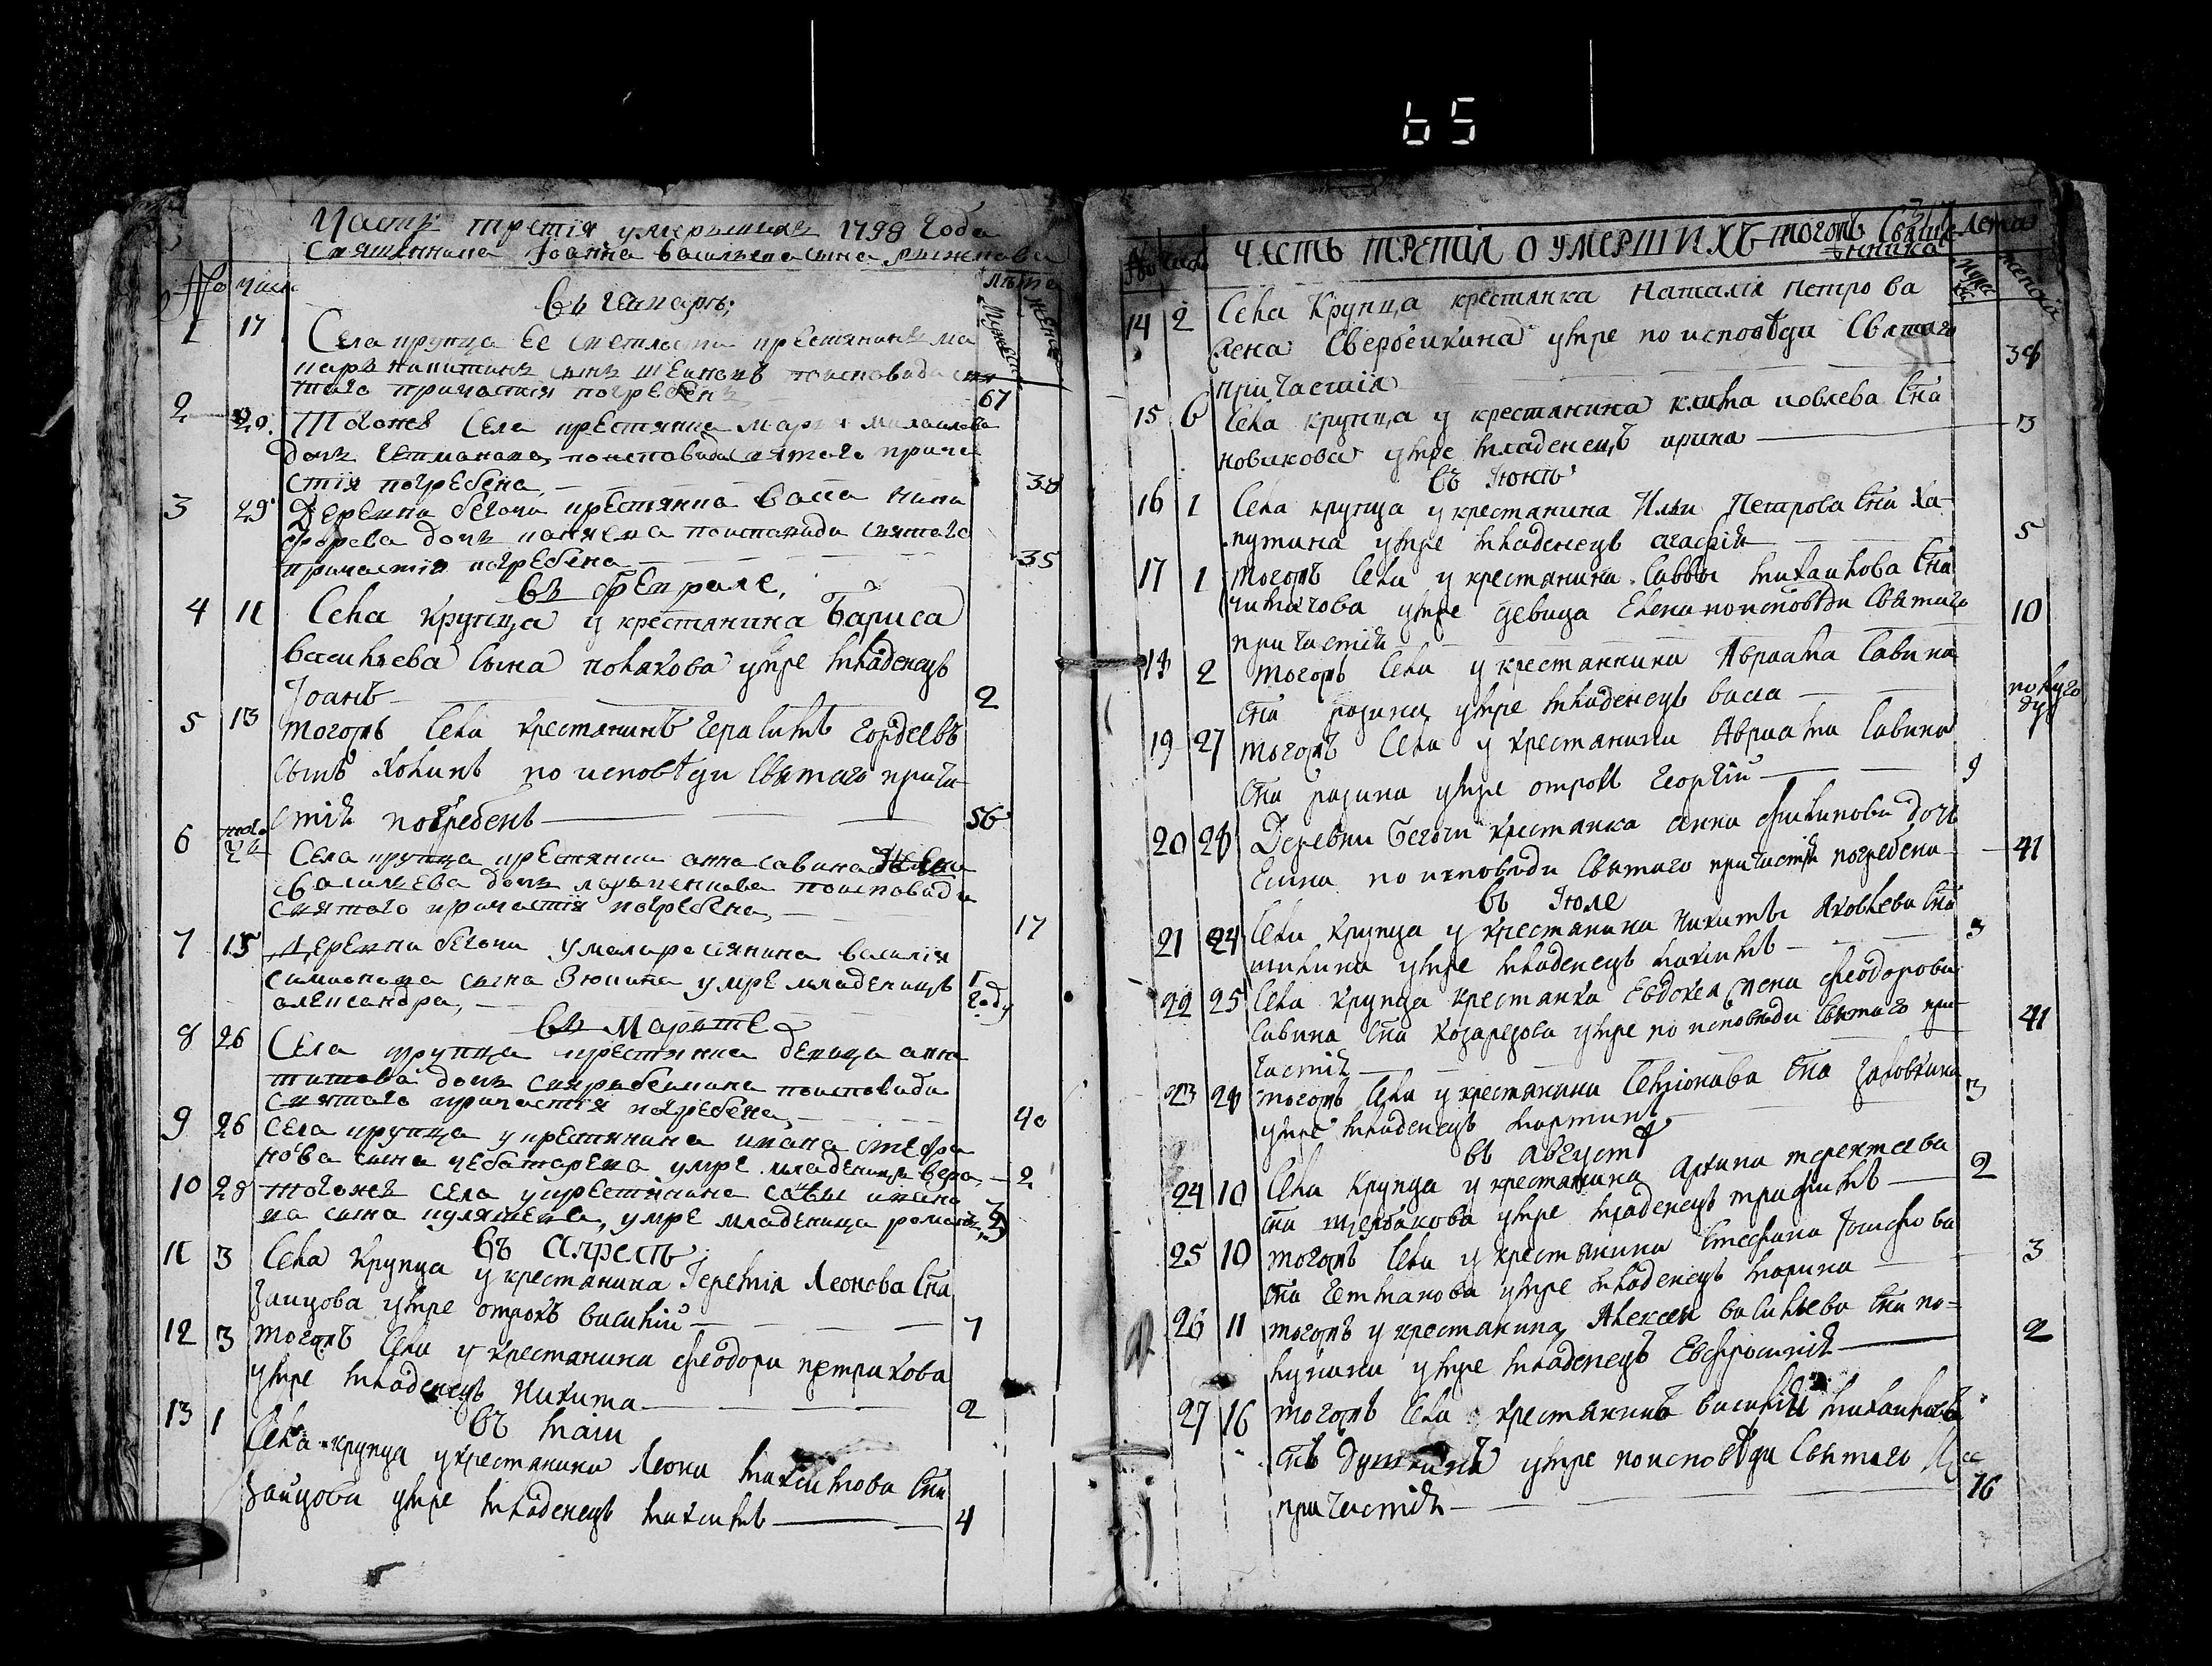 65
Часть третія умершихъ 1798 года
Священника Іоанна Васильева сына
№ числ лѣта
въ генварѣ;
мужеск женск
1 17 Села крупца Ее свѣтлости крестянинъ ма
каръ никитинъ сынъ поисповиди свя
таго причастія погребенъ 67
2 20. Тогожъ Села крестянка Марія михаилова
дочъ гетманова, поисповиди святаго прича
стія погребена, 38
3 29 Деревни бегочи крестянка васса ники
форова дочъ поисповиди святаго
причастія погребена 35
въ февралѣ,
4 11 Села Крупца у крестянина Бариса
васильева сына полякова умре младенецъ
Іоанъ 2
5 13 тогожъ села крестянинъ герасимъ гордеевъ
сынъ холинъ по исповѣди святаго прича
стія погребенъ 56
6 того
ч Села крупца крестянки анна савина
васильева дочъ поисповиди
святаго причастія погребена, 17
7 15 Деревни бегочи умаларасіянина василія
симионова сына Зюкина умре младеницъ 1
александра, году
въ Мартѣ
8 26 Села крупца крестянка девица анна
титова дочъ поисповиди
святаго причастія погребена, 40
9 26 Села крупца укрестянина ивана стефа
нова сына чебатарева умре младеница вера, 2
10 28 Тогожъ села укрестянина савы ивано
ва сына куляшева, умре младеница романъ, 3
въ Апрелѣ
11 3 Села Крупца у крестянина Іеремія Леонова сна
зайцова умре отрокъ василій 7
12 3 тогожъ села у крестянина феодора петрикова
умре младенецъ Никита 2
въ маіи
13 1 Села крупца укрестянина Леона максимова сна
зайцова умре младенецъ максимъ 4
317
№ число ЧАСТЬ ТРЕТІЯ О УМЕРШИХЪ тогожъ Свяще лета
нника мужеск женскія
14 2 Села Крупца крестянка Наталія петрова
жена Сверделкина умре по исповѣди Святаго
причастія 38
15 6 Села крупца у крестянина клима иовлева сна
новикова умре младенецъ ирина 3
въ Іюнѣ
16 1 Села крупца у крестянина Ильи Петрова сна ха-
путина умре младенецъ агафія 5
17 1 тогожъ села у крестянина Саввы михаилова сна
чумачова умре девица Елена поисповѣди святаго
причастія 10
18 2 тогожъ села у крестянина Авраама Савина
сна разина умре младенецъ васса полуго
ду
19 27 тогожъ села у крестянина Авраама Савина
сна разина умре отрокъ георгій 9
20 28 Деревни бегочи крестянка анна филипова дочъ
Ешина по исповиди святаго причастія погребена 41
въ Іюле
21 24 Села крупца у крестянина Никиты Яковлева сна
шикина умре младенецъ максимъ 3
22 25 Села крупца крестянка Евдокея жена феодорова
савина сна козарезова умре по исповѣди святаго при-
частія 41
23 28 тогожъ села у крестянина Семіонава сна головкина 3
умре младенецъ мартинъ
въ августѣ
24 10 Села крупца у крестянина Архипа терентьева
сна щербакова умре младенецъ трифимъ 2
25 10 тогожъ села у крестянина Стефана Іосифова
сна гетманова умре младенецъ марина 3
26 11 тогожъ у крестянина Алексея васильева сна по=
лунина умре младенецъ Евфросинія 2
27 16 тогожъ села крестянинъ василій михаиловъ
снъ умре поисповѣди святаго
причастія 76